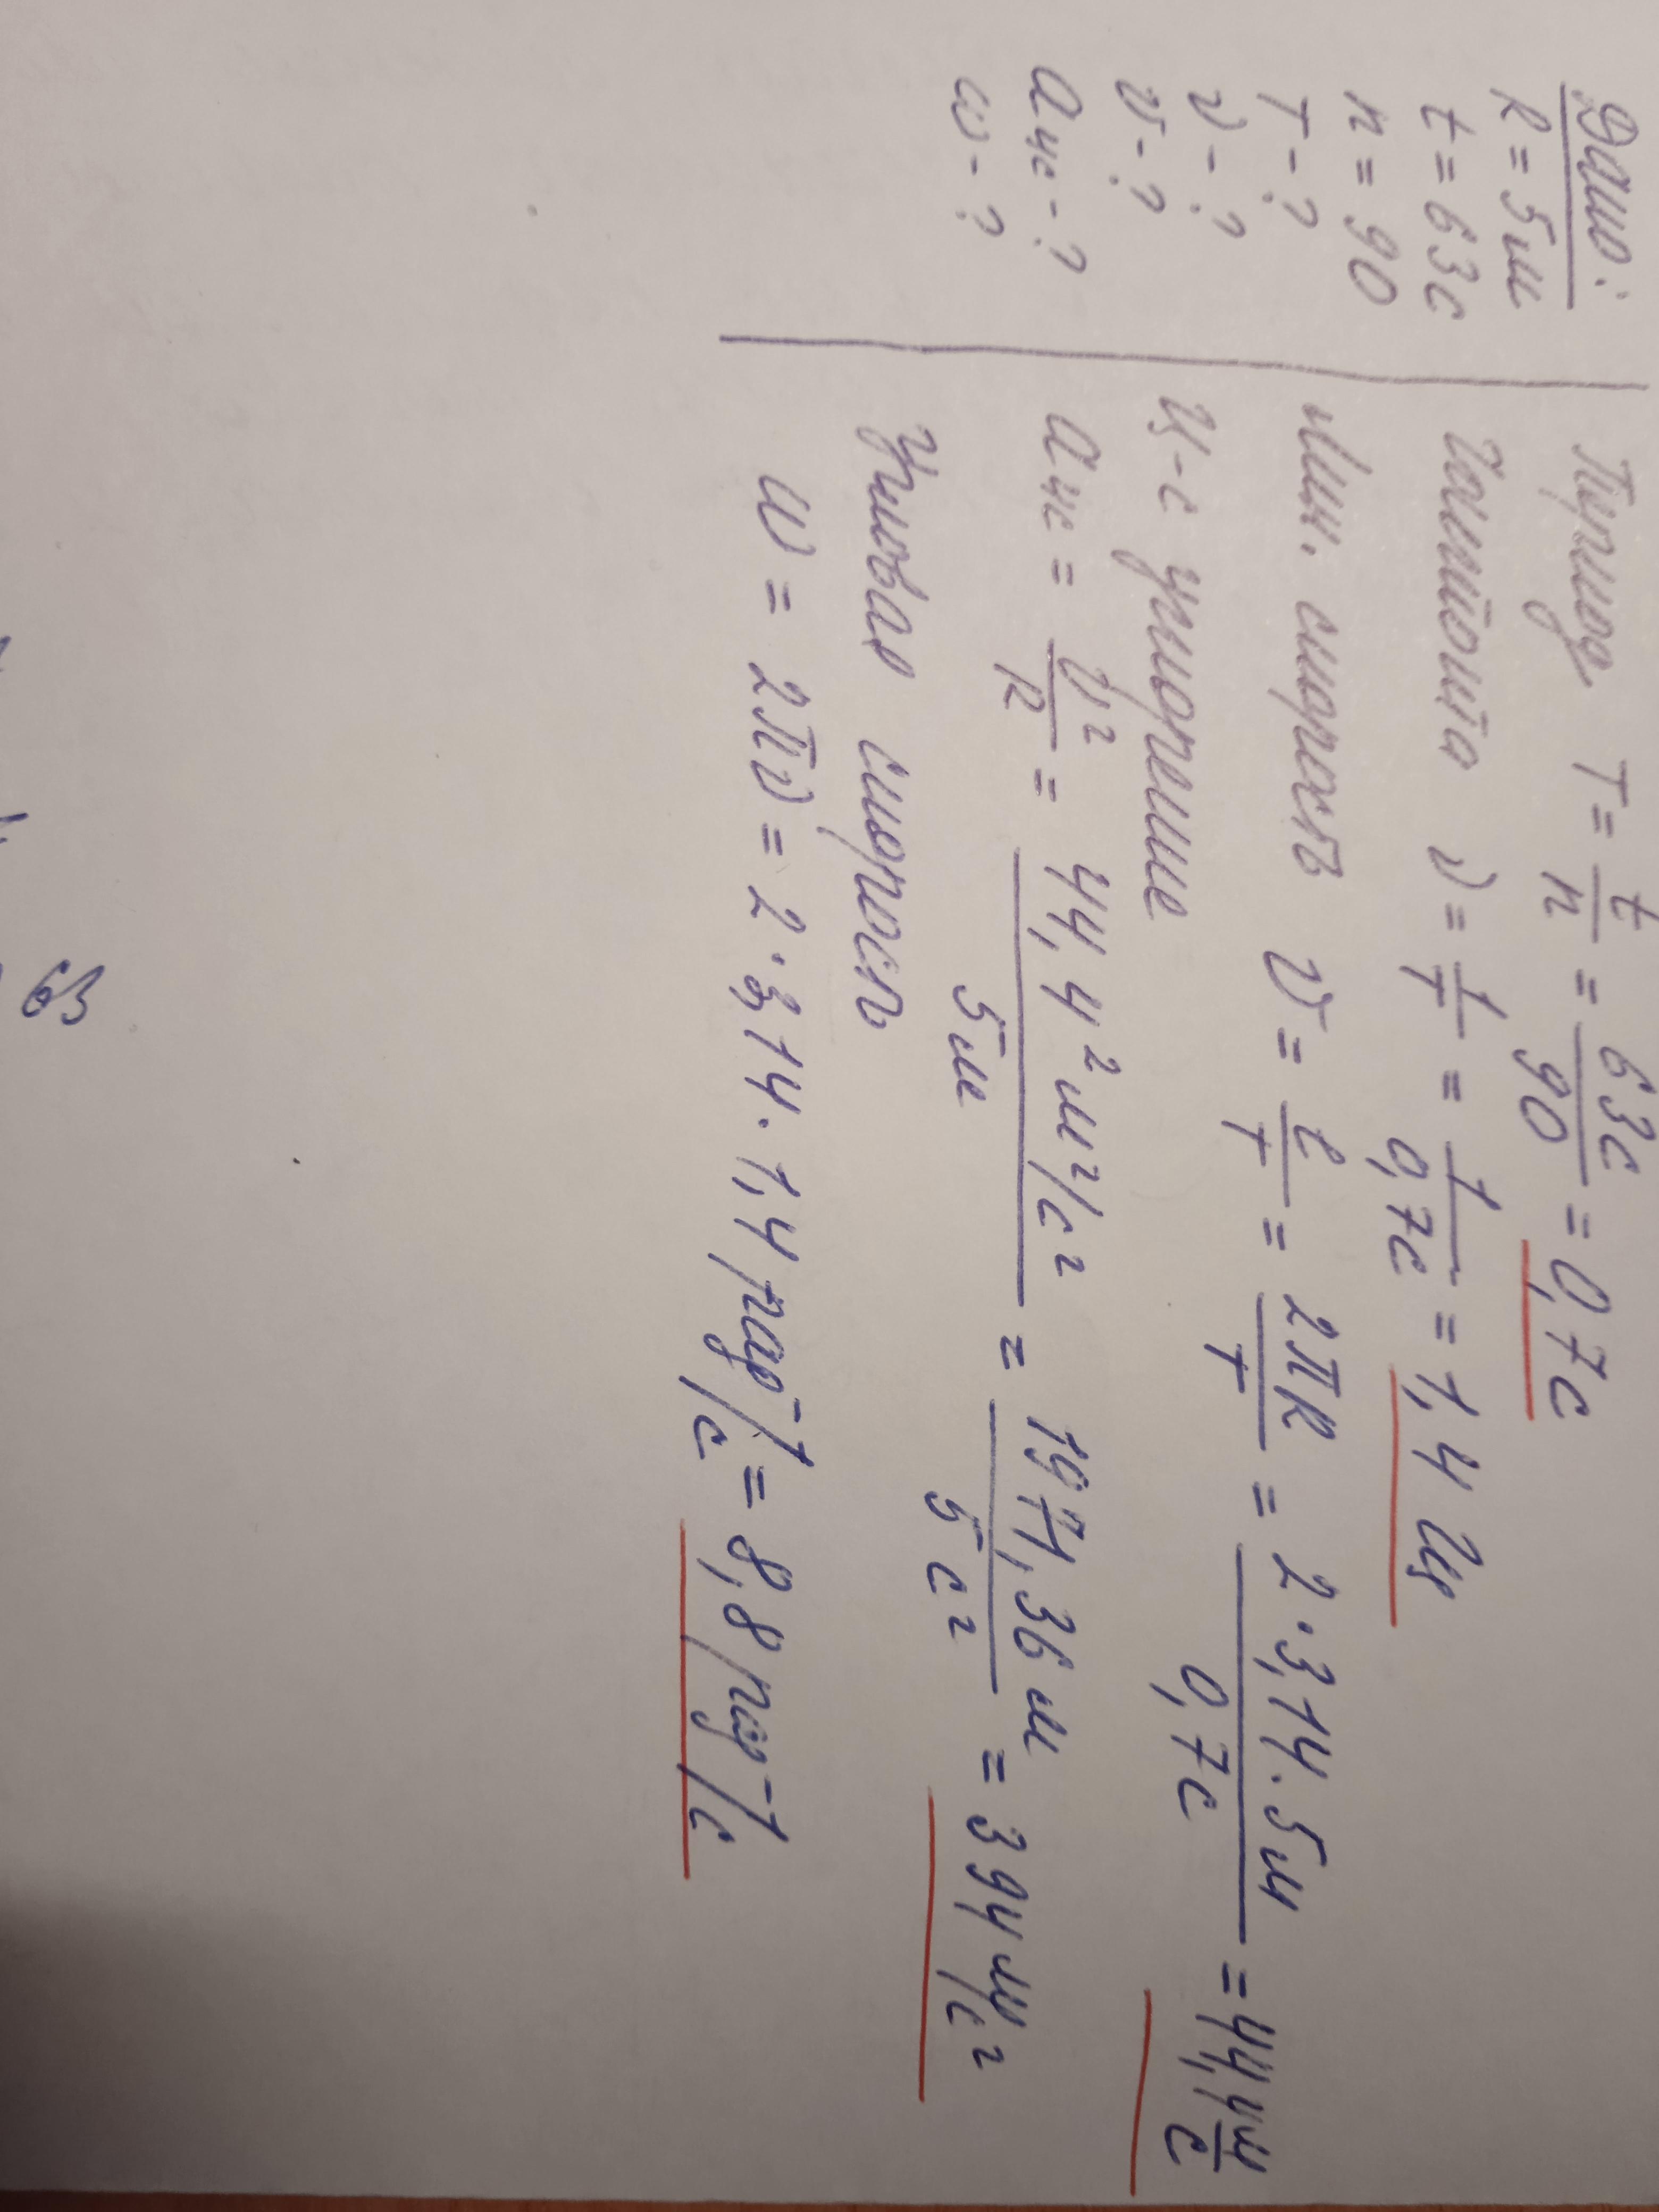 Дано:
R = 5м
t = 63с
n = 90
T - ?
ν - ?
v - ?
aцс - ?
ω - ?
Период T = t/n = 63с/90 = 0,7с
Частота ν = 1/T = 1/0,7с = 1,4 Гц
Лин. скорость v = ℓ/T = 2πR/T = 2·3,14·5м/0,7с = 44,4 м/с
Ц-с ускорение
aцс = v²/R = 44,4² м²/с²/5м = 1971,36 м/5 с² = 394 м/с²
Угловая скорость
ω = 2πν = 2·3,14·1,4 рад/с = 8,8 рад/с
63